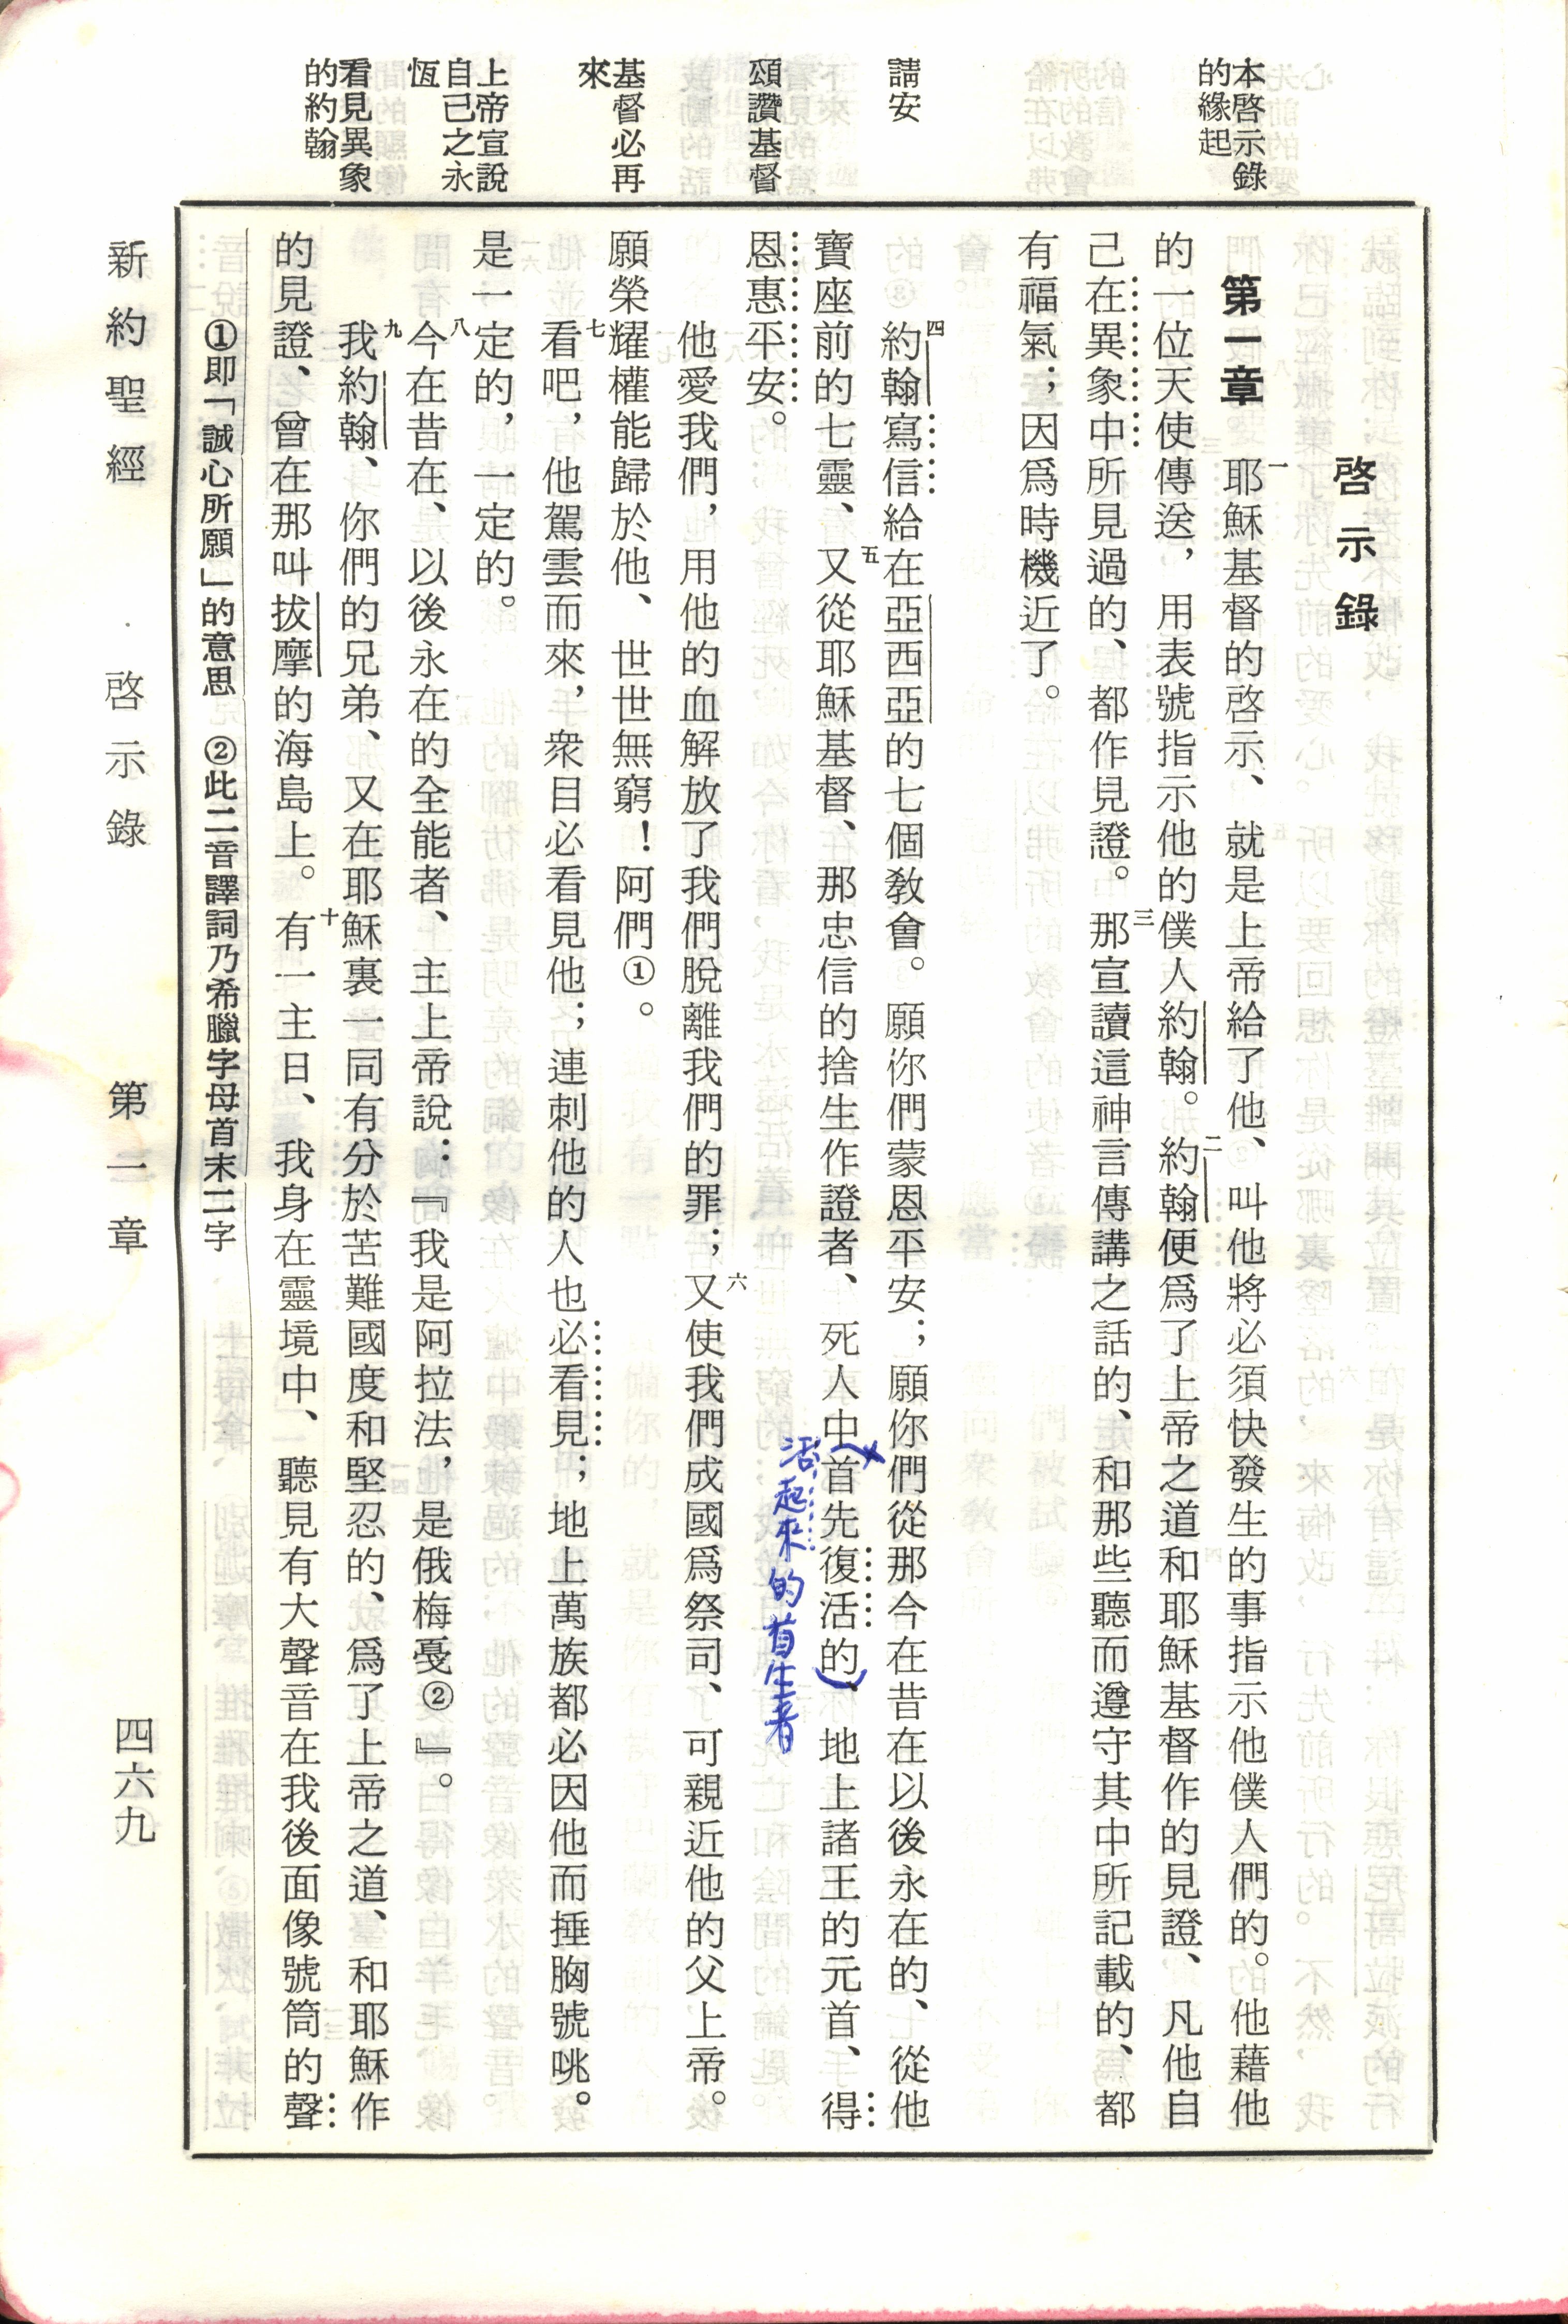 本啓示錄
的緣起
請安
頌讚基督
基督必再
來
上帝宣說
自己之永
恆
看見異象
的約翰
啓示錄
第一章　一耶穌基督的啓示、就是上帝給了他、叫他將必須快發生的事指示他僕人們的。他藉他
的一位天使傳送，用表號指示他的僕人約翰。二約翰便爲了上帝之道和耶穌基督作的見證、凡他自
己在異象中所見過的、都作見證。三那宣讀這神言傳講之話的、和那些聽而遵守其中所記載的、都
有福氣；因爲時機近了。
四約翰寫信給在亞西亞的七個教會。願你們蒙恩平安；願你們從那今在昔在以後永在的、從他
寶座前的七靈、五又從耶穌基督、那忠信的捨生作證者、死人中首先復活的、地上諸王的元首、得
活起來的首生者
恩惠平安。
他愛我們，用他的血解放了我們脫離我們的罪；六又使我們成國爲祭司、可親近他的父上帝。
願榮耀權能歸於他、世世無窮！阿們①。
七看吧，他駕雲而來，衆目必看見他；連刺他的人也必看見；地上萬族都必因他而捶胸號咷。
是一定的，一定的。
八今在昔在、以後永在的全能者、主上帝說：『我是阿拉法，是俄梅戞②』。
九我約翰、你們的兄弟、又在耶穌裏一同有分於苦難國度和堅忍的、爲了上帝之道、和耶穌作
的見證、曾在那叫拔摩的海島上。十有一主日、我身在靈境中、聽見有大聲音在我後面像號筒的聲
①即「誠心所願」的意思　②此二音譯詞乃希臘字母首末二字
新約聖經　啓示錄　第一章　四六九